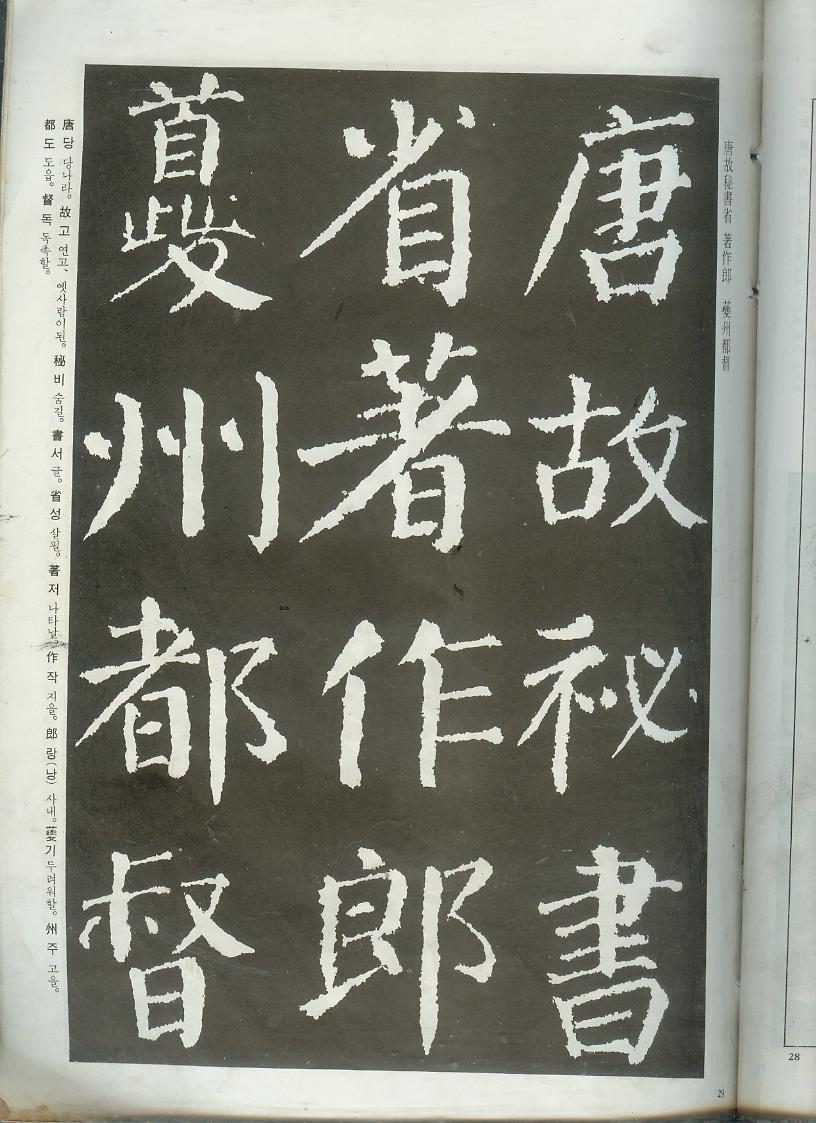 唐故秘書省 著作郎 夔州都督
唐故祕書
省著作郎
夔州都督
唐 당 당나라。 故 고 연고、옛사람이된。 秘 비 숨길。 書 서 글。 省 성 살필。 著 저 나타날。 作 작 지을。 郎 랑(낭) 사내。 夔 기 두려워할。 州 주 고을。
都 도 도읍。 督 독 독촉할。
29
28